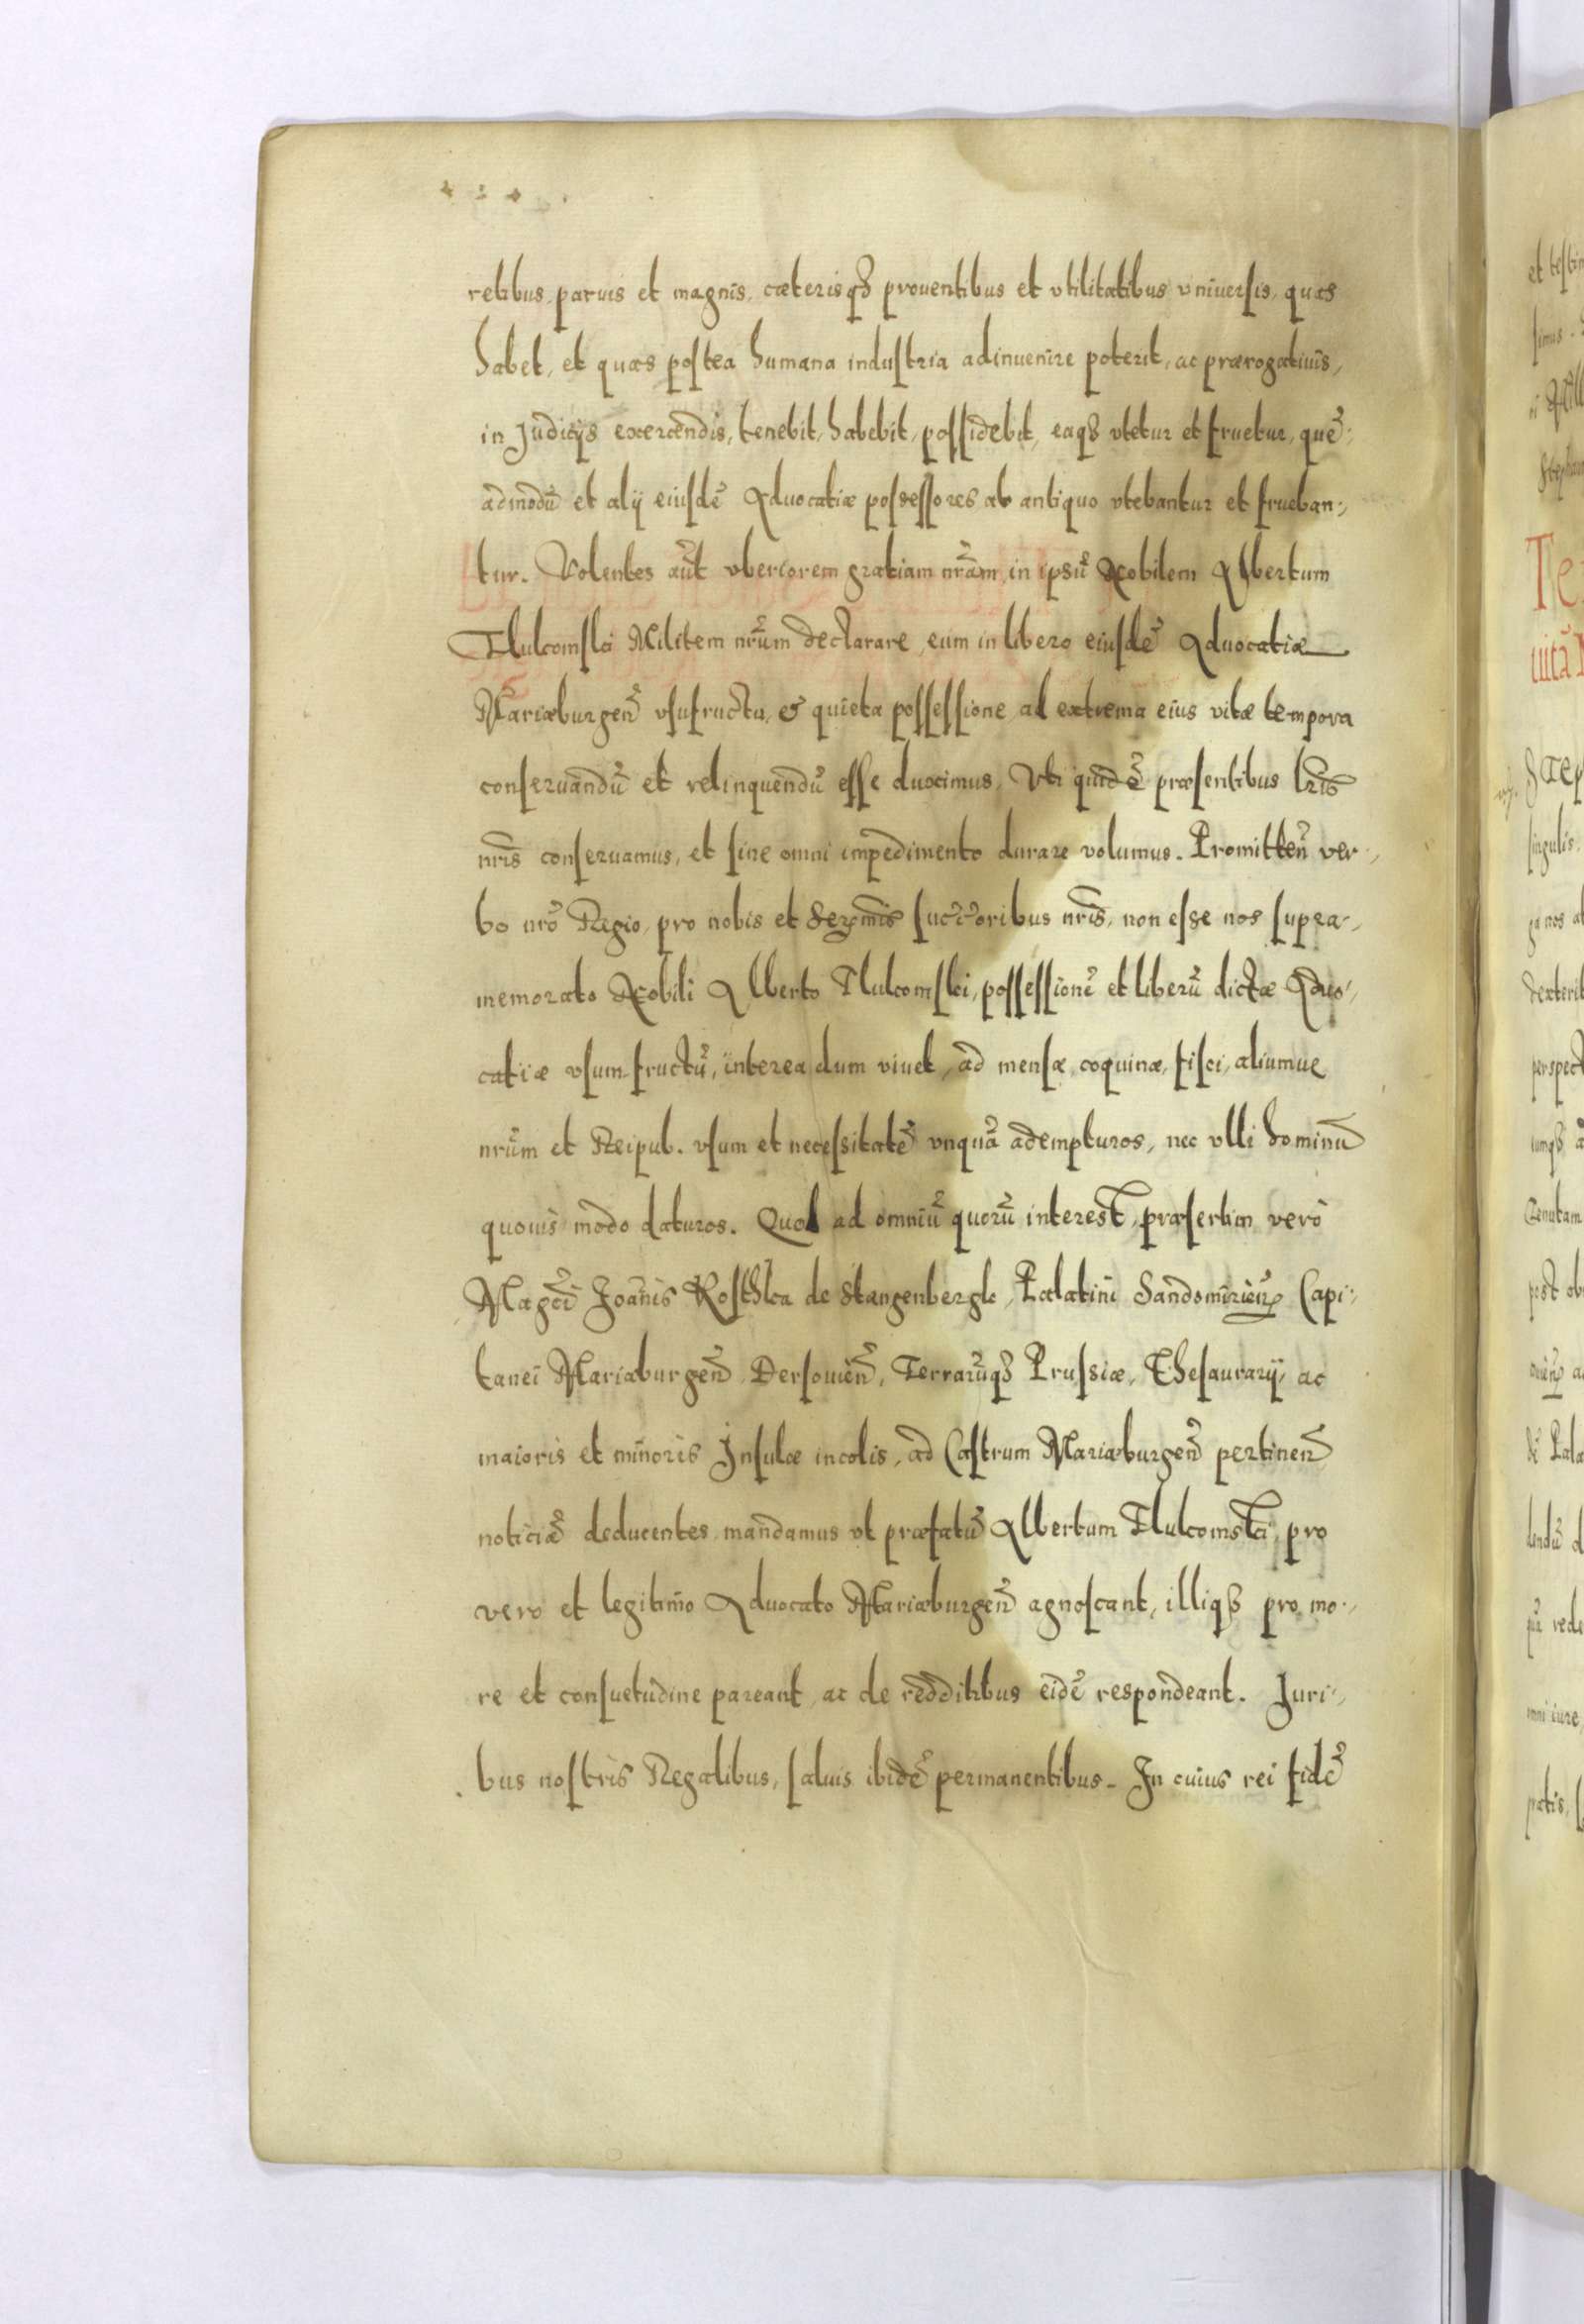 retibus, paruis et magnis, cæterisqȝ prouentibus et vtilitatibus vniuersis, quas
habet, et quas postea humana industria adinuenire poterit, ac prærogatiuis,
in Judicijs exercendis, tenebit, habebit, possidebit, eaqȝ vtetur et fruetur, quē:
admodū et alij eiusdē Aduocatiæ possessores ab antiquo vtebantur et frueban:,
tur. Volentes aūt vberiorem gratiam nr̄am, in ipsū Nobilem Albertum
Tlukomski Militem nr̄um declarare, eum in libero eiusdē Aduocatiæ
Mariæburgen̄ vsufructu, & quieta possessione, ad extrema eius vitæ tempora
conseruandū et relinquendū esse duximus, Vti quidē præsentibus lr̄is
nr̄is conseruamus, et sine omni impedimento durare volumus. Promitten̄ ver:,
bo nr̄o Regio, pro nobis et Ser̄mis succ̄oribus nr̄is, non esse nos supra:,
memorato Nobili Alberto Tlukomski, possessionē et liberū dictæ Aduo:,
catiæ vsum fructū, interea dum viuet, ad mensæ, coquinæ, fisci, aliumue
nr̄um et Reipub. vsum et necessitatē vnquā adempturos, nec vlli hominū
quouis modo daturos. Quod ad omniū quorū interest, præsertim verò
Magc̄i Joannis Kosthka de Stangenbergk, Palatini Sandomirien̄, Capi:,
tanei Mariæburgen̄ Dersouien̄, Terrarūqȝ Prussiæ, Thesaurarij, ac
maioris et minoris Insulæ incolis, ad Castrum Mariæburgen̄ pertinen̄
noticiā deducentes, mandamus vt præfatū Albertum Tlukomski, pro
vero et legitimo Aduocato Mariæburgen̄ agnoscant, illiqȝ pro mo:,
re et consuetudine pareant, ac de redditibus eidē respondeant. Juri:,
bus nostris Regalibus, saluis ibidē permanentibus. In cuius rei fidē